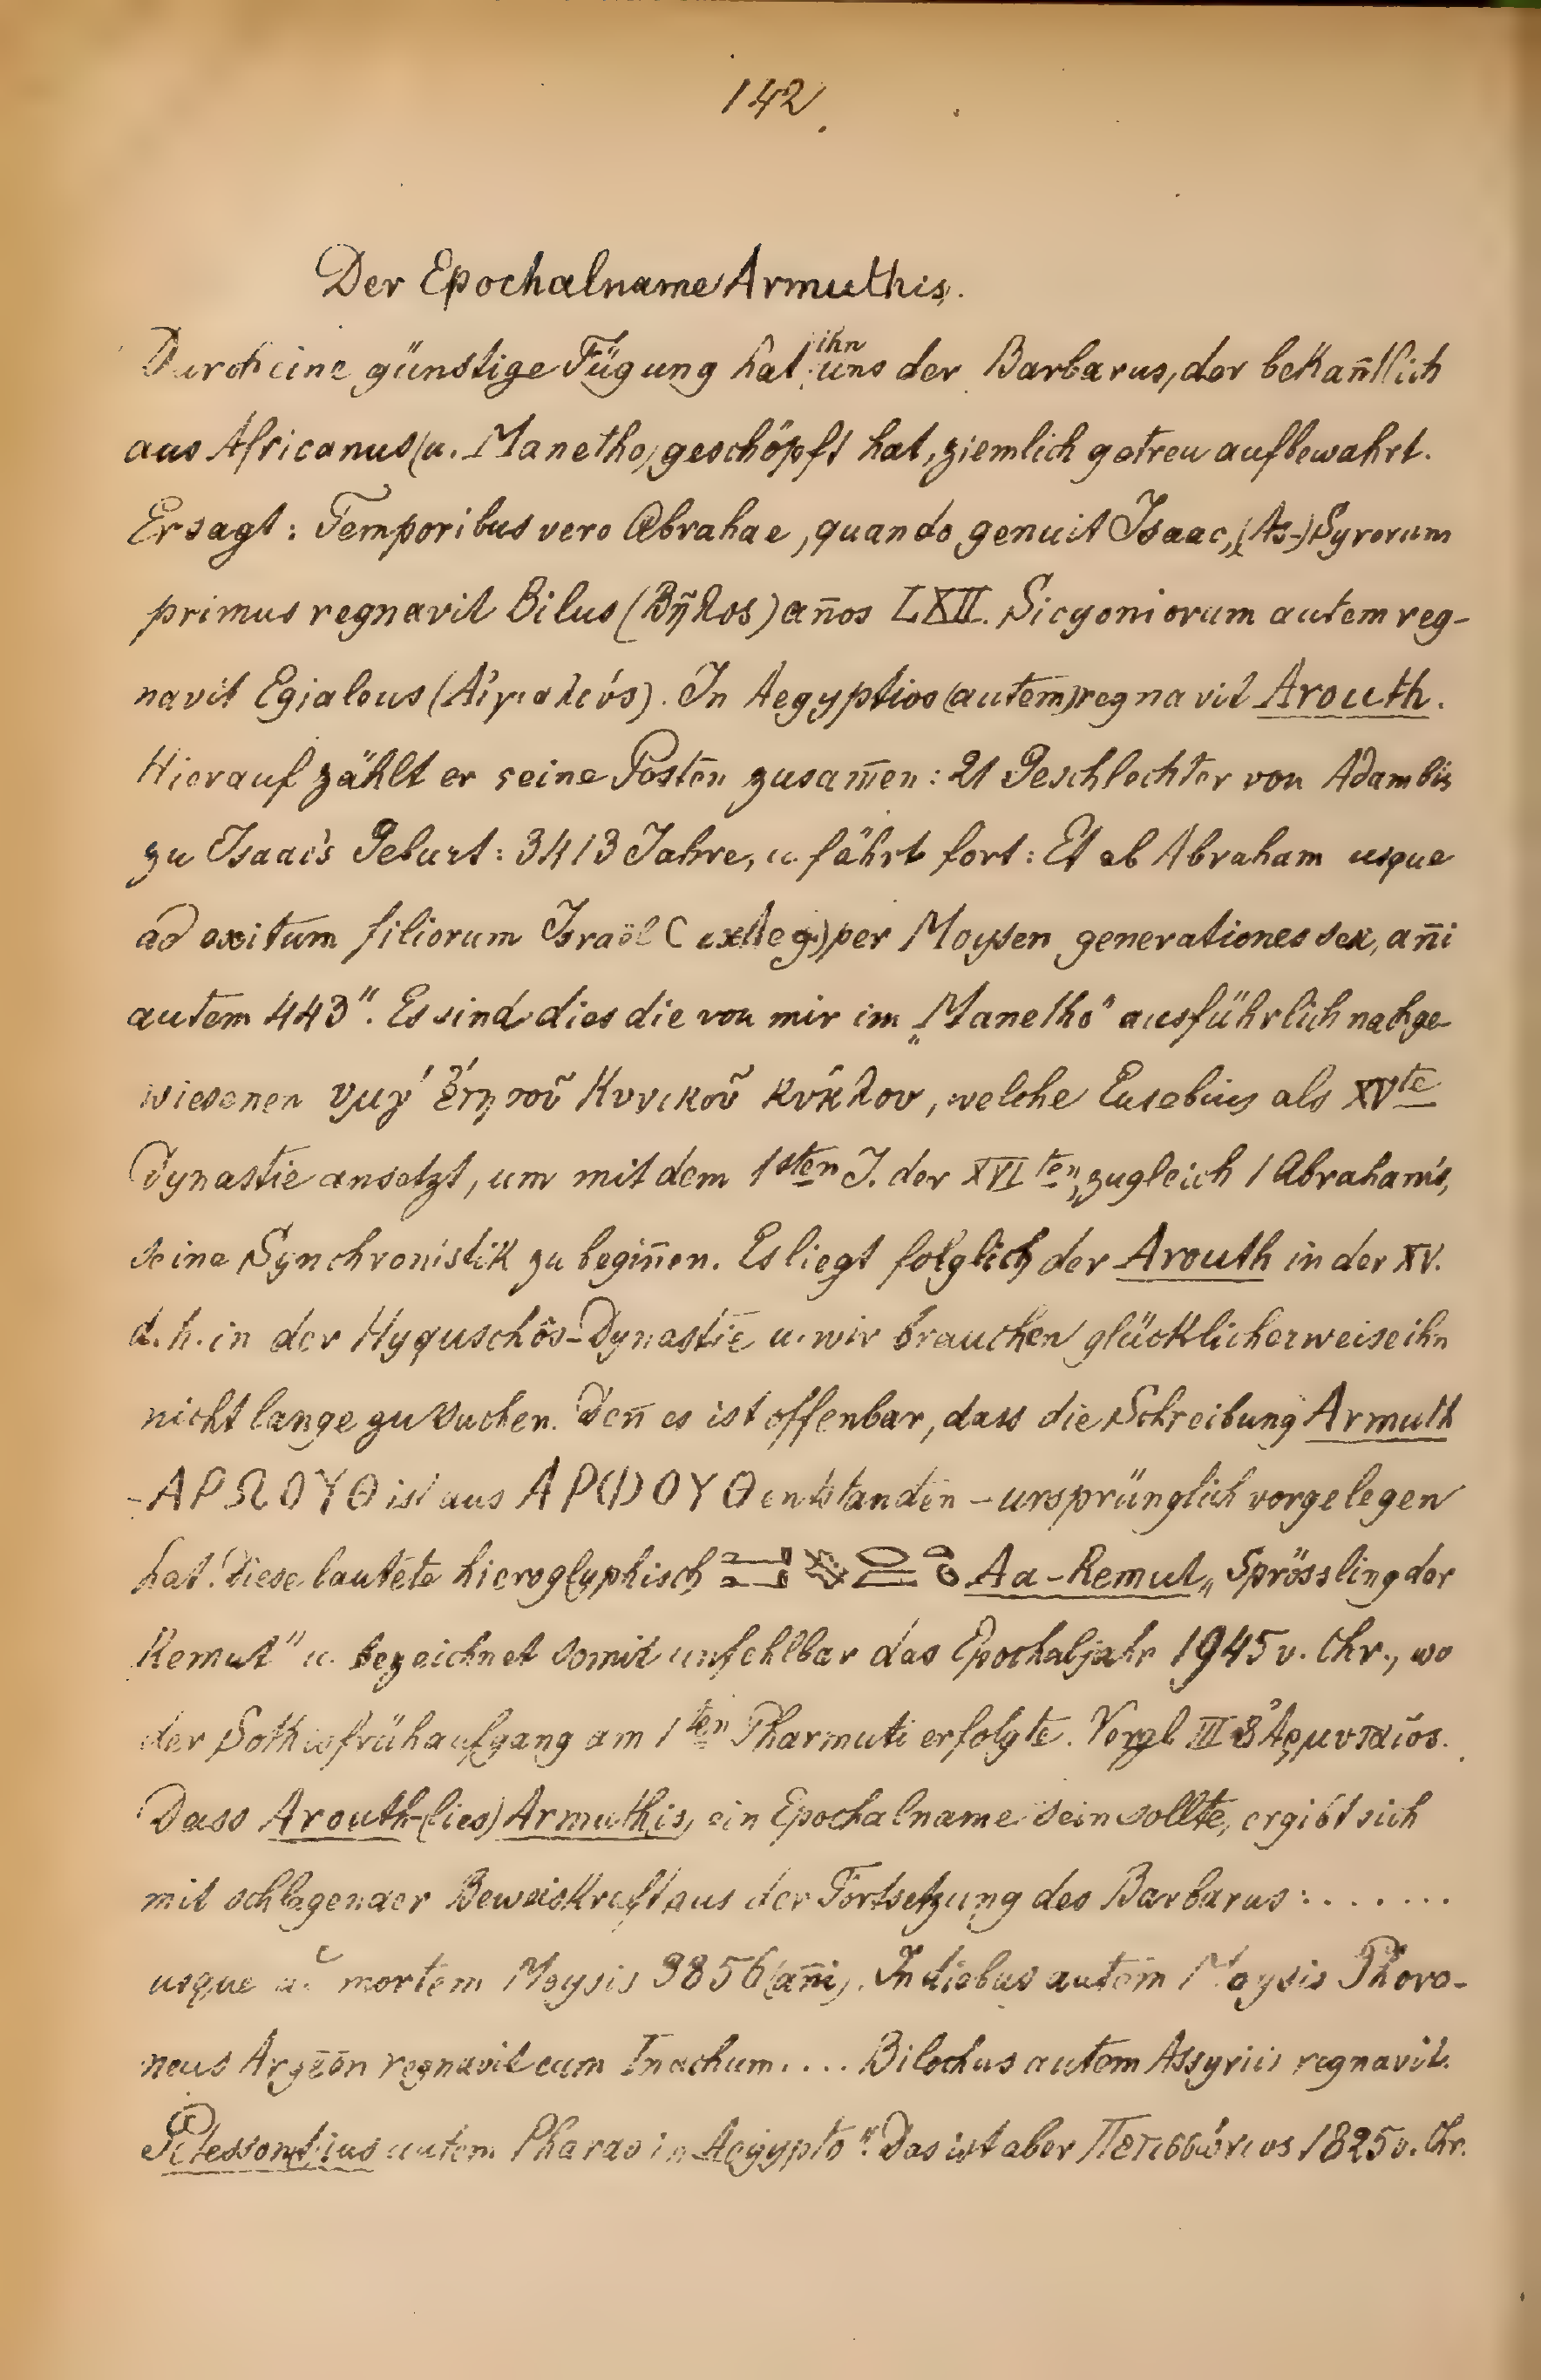 142.
Der Epochalname Armuthis.
Durch eine günstige Fügung hat ihn uns der Barbarus, der bekan̄tlich
aus Africanus (u. Manetho) geschöpft hat, ziemlich getreu aufbewahrt.
Er sagt: Temporibus vero Abrahae, quando genuit Isaac, (As-)Syrorum
primus regnavit Bilus (Βῆλος) an̄os LXII. Sicyoniorum autem reg-
navit Egialeus (Αἰγιαλεύς). In Aegyptios (autem) regnavit Arouth.
Hierauf zählt er seine Posten zusam̄en: 21 Geschlechter von Adam bis
zu Isaac's Geburt: 3413 Jahre, u. fährt fort: Et ab Abraham usque
ad exitum filiorum Israël (ex Aeg.) per Moysen generationes sex, an̄i
autem 443". Es sind dies die von mir im „Manetho" ausführlich nachge-
wiesenen υμγ´ ἔτη τοῦ Κυνικοῦ κύκλου, welche Eusebius als XVte
Dynastie ansetzt, um mit dem 1sten J. der XVIten, zugleich 1 Abraham's,
seine Synchronistik zu begin̄en. Es liegt folglich der Arouth in der XV.
d. h. in der Hyquschôs-Dynastie u. wir brauchen glücklicherweise ihn
nicht lange zu suchen. Den̄ es ist offenbar, dass die Schreibung Armuth
- ΑΡΩΟΥΘ ist aus ΑΡ(Ι)ΟΥΘ entstanden - ursprünglich vorgelegen
hat. Diese lautete hieroglyphisch Aa-Remut „Sprössling der
Remut" u. bezeichnet somit unfehlbar das Epochaljahr 1945 v. Chr., wo
der Sothisfrühaufgang am 1ten Pharmuti erfolgte. Vergl. III 8 Ἀρμυταῖος.
Dass Arouth (lies) Armuthis, ein Epochalname sein sollte, ergibt sich
mit schlagender Beweiskraft aus der Fortsetzung des Barbarus: . . . . . . .
usque ad mortem Moysis 3856 (an̄i). In diebus autem Moysis Phoro-
neus Argēōn regnavit cum Inachum. . . . Bilochus autem Assyriis regnavit.
Petessontius autem Pharao in Aegypto". Das ist aber Πετισσώντιος 1825 v. Chr.